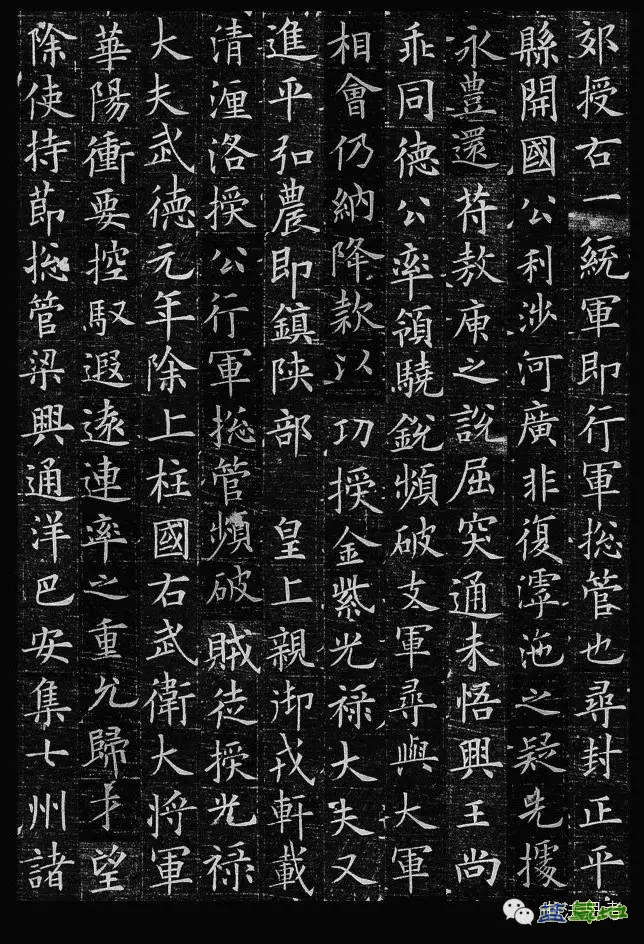 郊授右一統軍即行軍総管也尋封正平
縣開國公利涉河廣非復滹沲之疑先據
永豊還 苻敖庾之說屈突通未悟興王尚
乖同德公率領驍銳頻破支軍尋與大軍
相會仍納降款以 功授金紫光禄大夫又
進平弘農即鎮陝部 皇上親御戎軒載
清湹洛授公行軍総管頻破賊徒授光禄
大夫武德元年除上柱國右武衛大將軍
華陽衝要控馭遐逺連率之重允歸才望
除使持莭総管梁興通洋巴安集七州諸